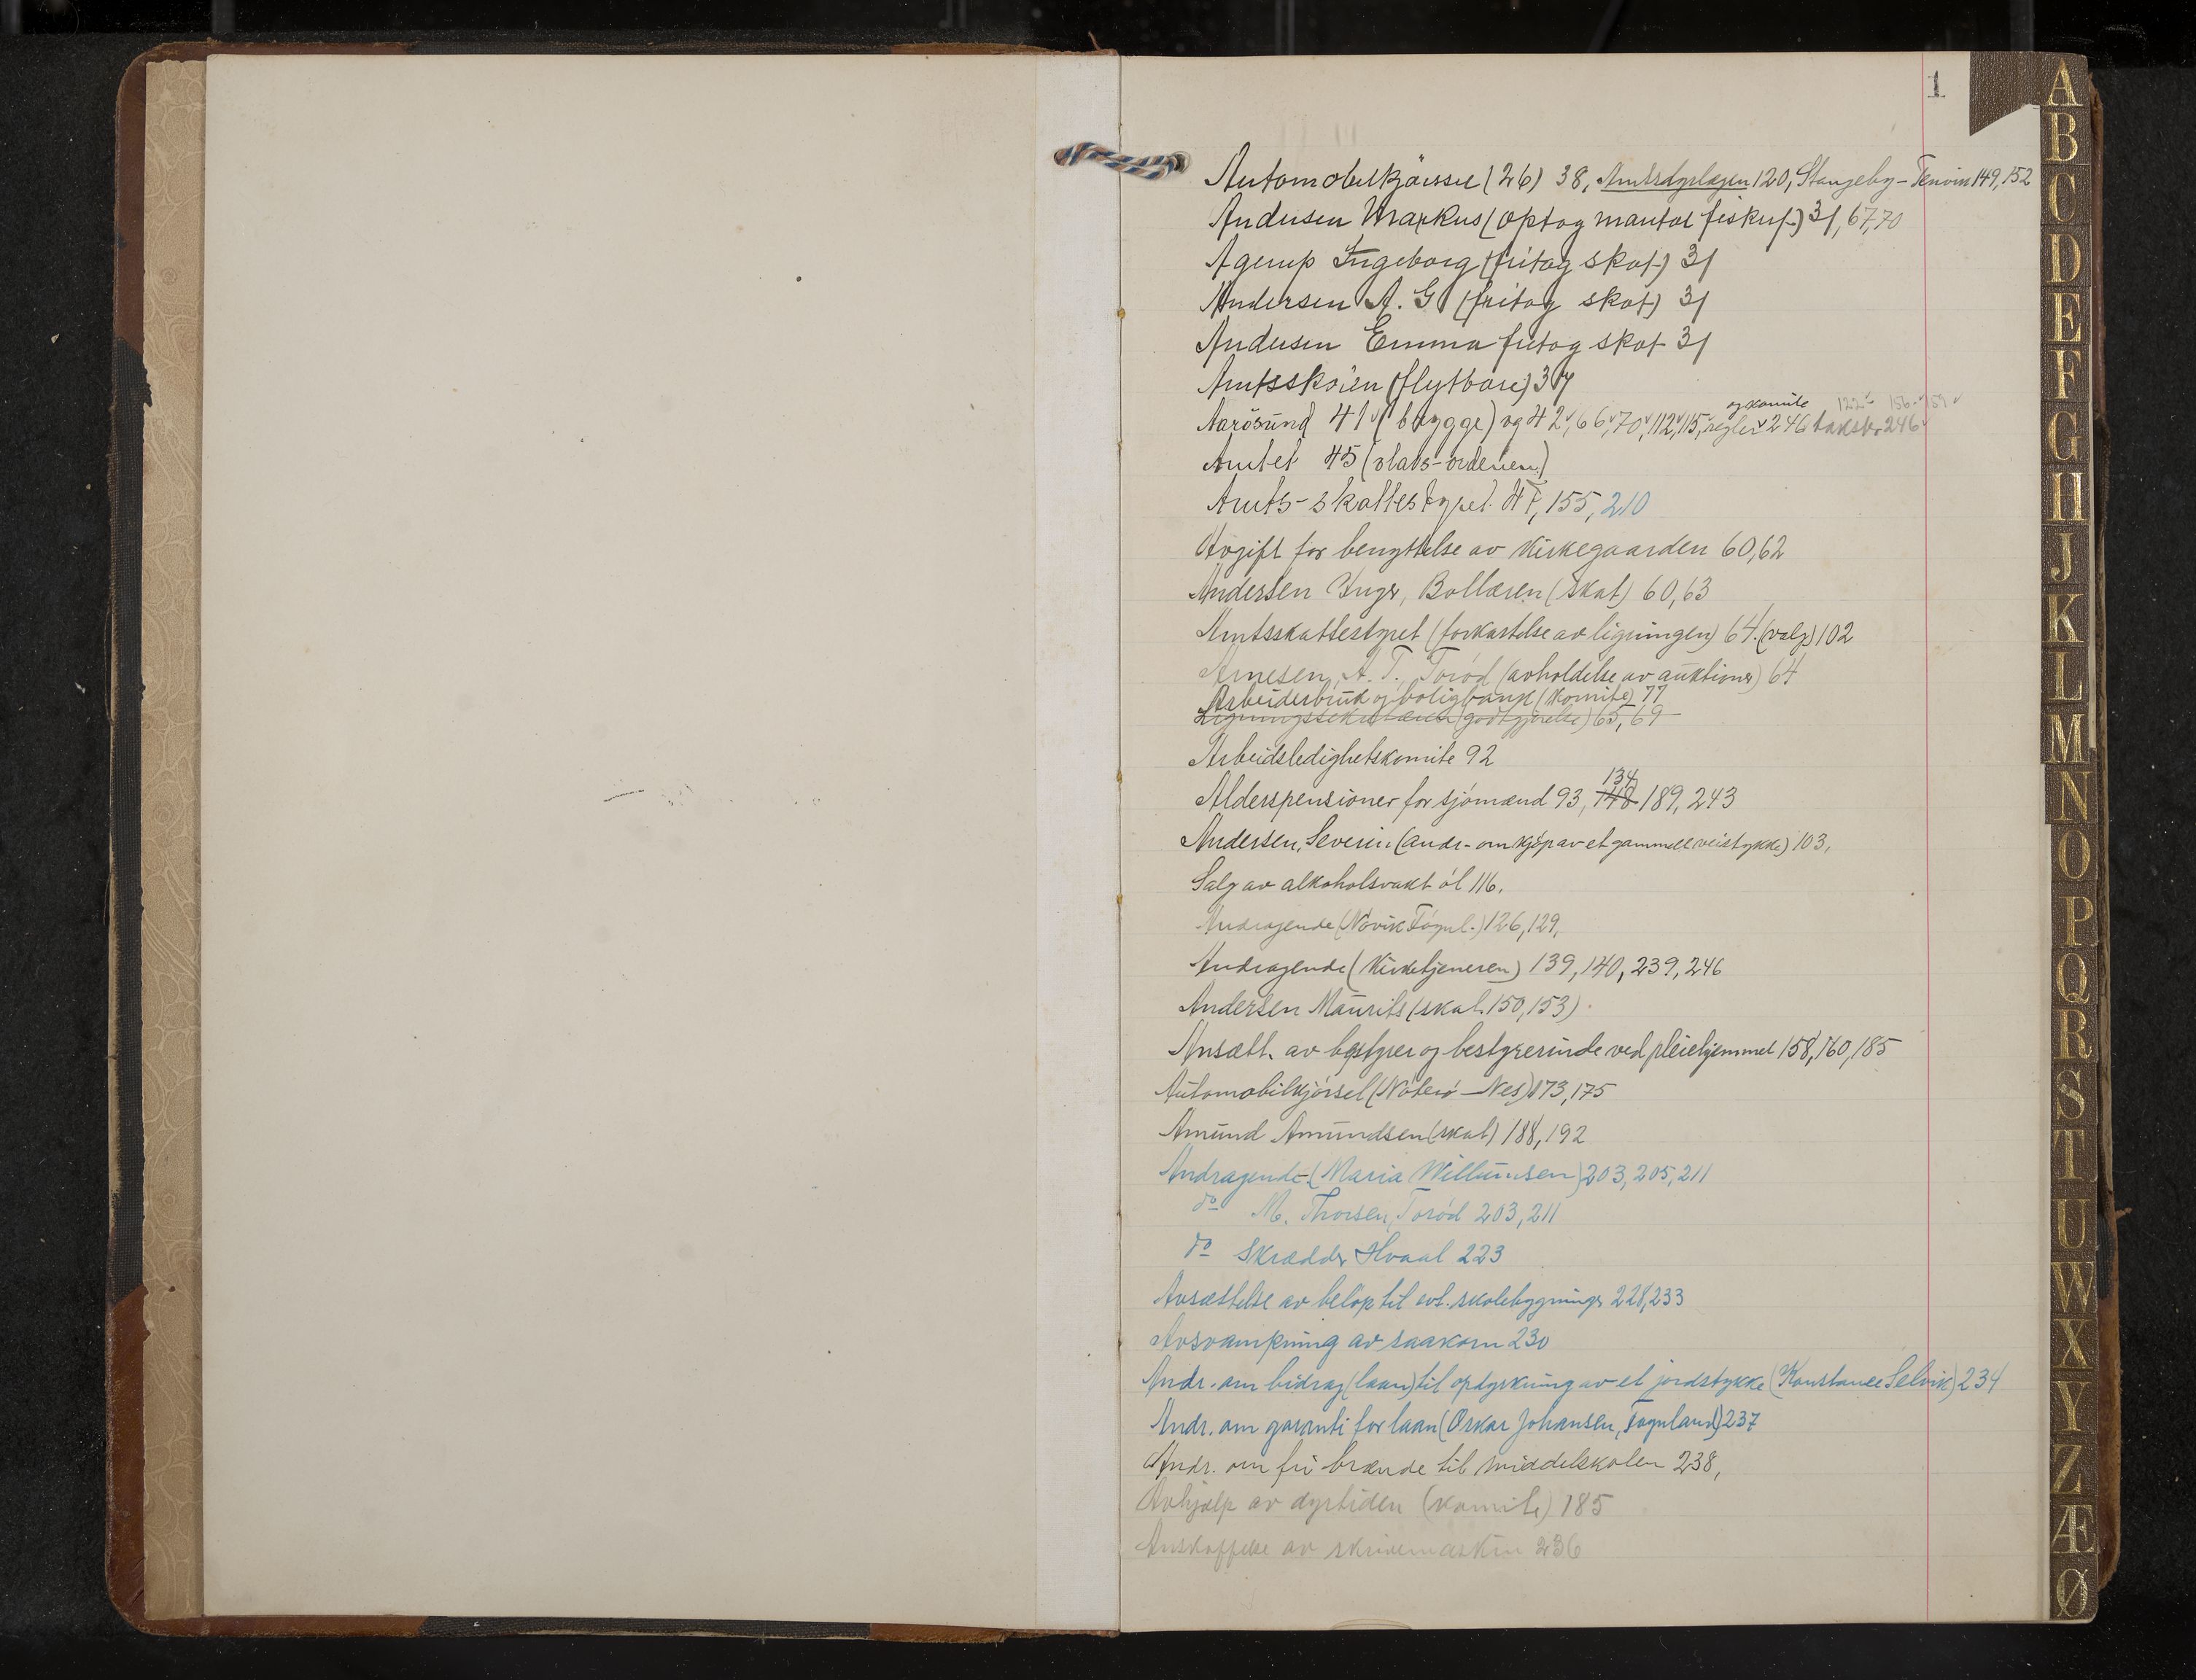 1
Automobilkjørsel (26) 38, Amtsdyrlægen 120, Stangeby - Tenvik 149, 152
Andersen Markus (optag mantal fiskuf.) 31, 67, 70
Agerup Ingeborg (fritag skat) 31
Andersen A. G. (fritag skat) 31
Andersen Emma fritag skat 31
Amtsskoien (flytbare) 37
og komite 122 156 159
Aarøsund 41 (brygge) og 42, 66, 70, 112, 115, regler 246 takster 246
Amtet 45 (olavs-ordenen)
Amts-skattestyret 47, 155, 210
Avgift for benyttelse av kirkegaarden 60, 62
Andersen Inger, Bollæren (skat) 60, 63
Amtsskattestyret (forkastelse av ligningen) 64. (valg) 102
Arnesen, A. T., Torød (avholdelse av auktioner) 64
Arbeiderbruk og boligbank (komite) 77
Ligningssekretæren (godtgjørelse) 65, 69
Arbeidsledighetskomite 92
134
Alderspensioner for sjømænd 93, 148 189, 243
Andersen, Severin (andr. om kjøp av et gammelt veistykke) 103,
Salg av alkoholsvakt øl 116.
Andragende (Novik Føynl.) 126, 129,
Andragende (Kirketjeneren) 139, 140, 239, 246
Andersen Maurits (skat. 150, 153).
Ansætt. av bestyrer og bestyrerinde ved pleiehjemmet 158, 160, 185
Automobilkjørsel (Nøterø - Nes) 173, 175
Amund Amundsen (skat) 188, 192
Andragende (Maria Willumsen) 203, 205, 211
do M. Thorsen, Torød 203, 211
do Skrædder Hvaal 223
Avsættelse av beløp til evt. skolebygninger 228, 233
Avsvampning av saakorn 230
Andr. om bidrag (laan) til opdyrkning av et jordstykke (Konstance Selvik) 234
Andr. om garanti for laan (Oskar Johansen, Føynland) 237
Andr. om fri brænde til middelskolen 238,
Avhjælp av dyrtiden (komite) 185
Anskaffelse av skrivemaskin 236
A
B
C
D
E
F
G
H
J
K
L
M
N
O
P
Q
R
S
T
U
W
X
Y
Z
Æ
Ø